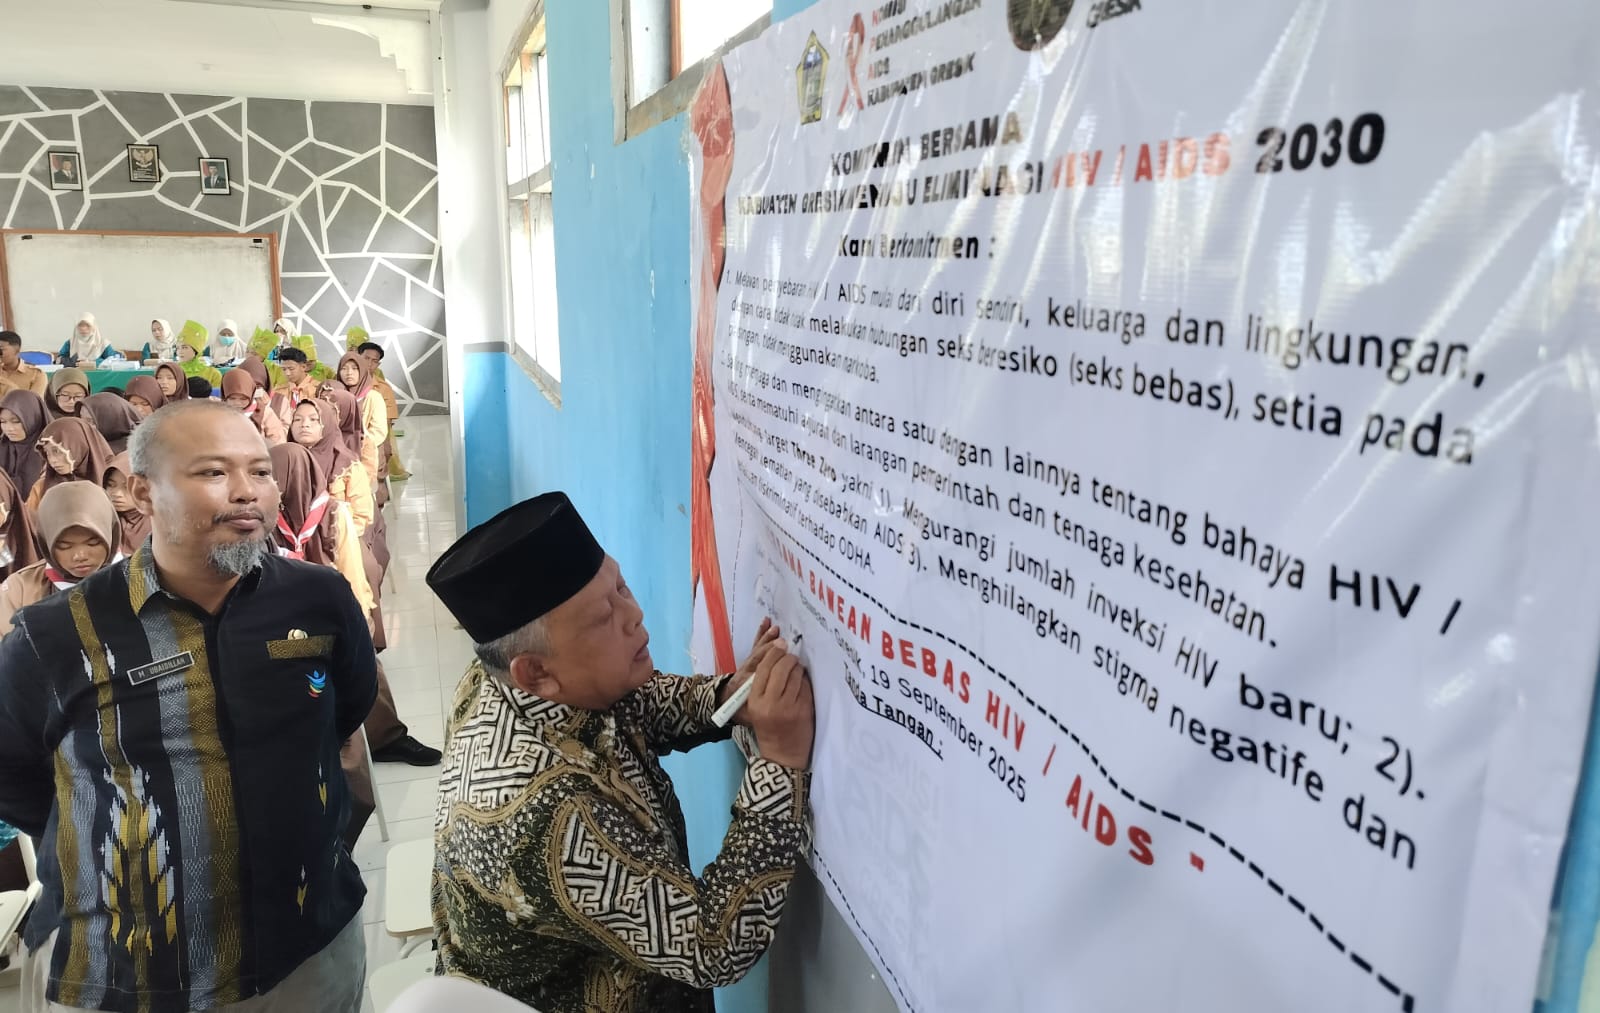 KOMISI
PENANGGULANGAN
AIDS
KABUPATEN GRESIK
GRESIK
KOMITMEN BERSAMA
KABUATEN GRESIK MENUJU ELIMINASI HIV / AIDS 2030
Kami Berkomitmen :
1. Melawan penyebaran HIV / AIDS mulai dari diri sendiri, keluarga dan lingkungan,
dengan cara tidak melakukan hubungan seks beresiko (seks bebas), setia pada
pasangan, tidak menggunakan narkoba.
2. Saling menjaga dan mengingatkan antara satu dengan lainnya tentang bahaya HIV /
AIDS, serta mematuhi anjuran dan larangan pemerintah dan tenaga kesehatan.
target Three Zero yakni 1). Mengurangi jumlah inveksi HIV baru; 2).
Mencegah kematian yang disebabkan AIDS 3). Menghilangkan stigma negatife dan
diskriminatif terhadap ODHA.
BAWEAN BEBAS HIV / AIDS "
Bawean - Gresik, 19 September 2025
Tanda Tangan :
M UBAIDILLAH